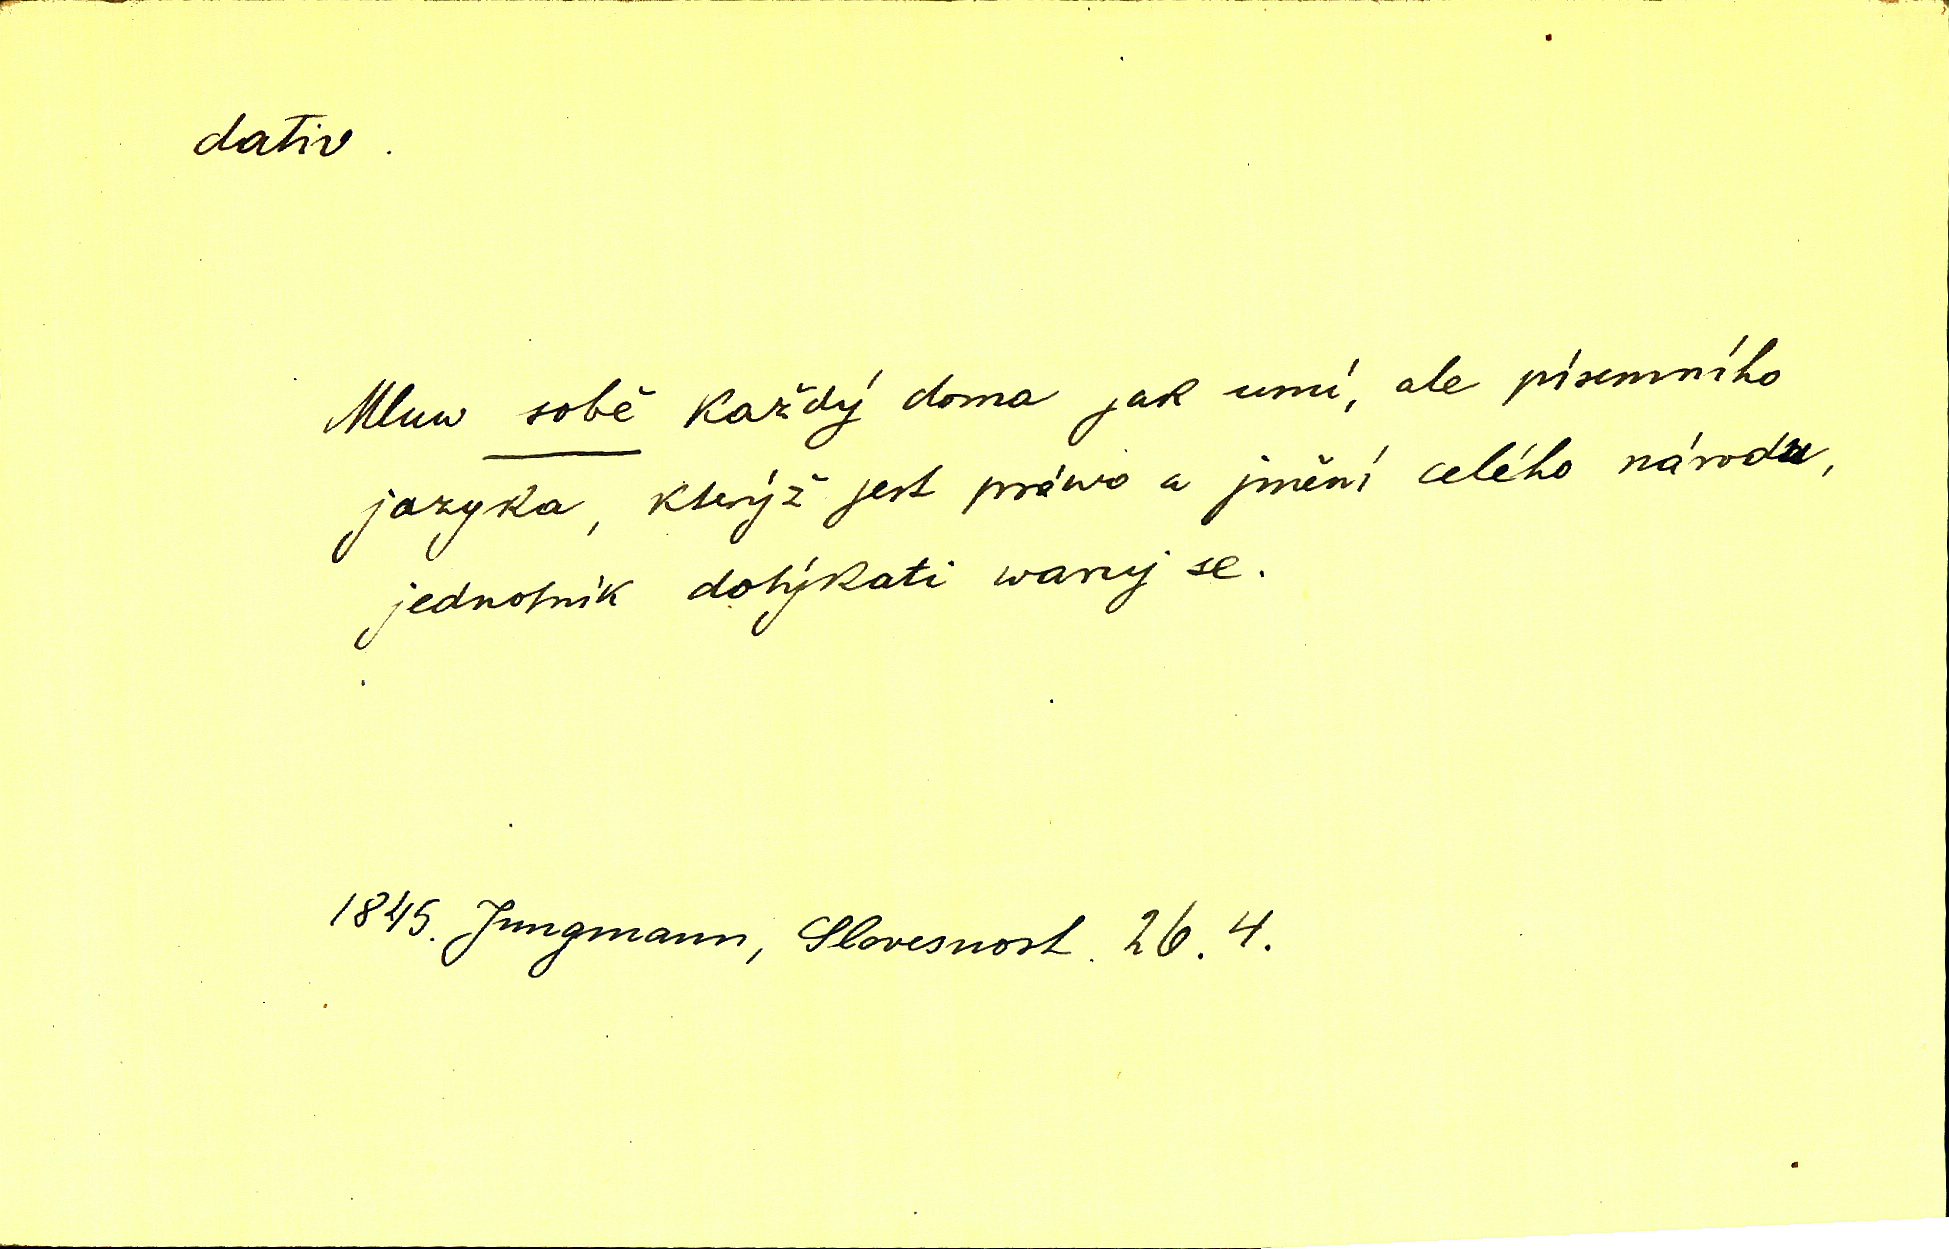 dativ.
Mluw sobě každý doma jak umí, ale písemního
jazyka, kterýž jest práwo a jmění celého národu,
jednotník dotýkati waruj se.
1845. Jungmann, Slovesnost. 26. 4.